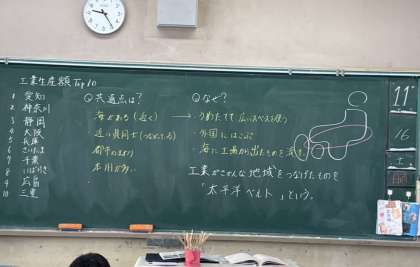 工業生産額 Top 10
1 愛知
2 神奈川
3 静岡
4 大阪
5 兵庫
6 さいたま
7 千葉
8 いばらき
9 広島
10 三重
Q 共通点は?
・海がある(近く)
・近い県同士(つながっている)
・都市のまわり
・本州が多い
Q なぜ?
・うめたてて広いスペースを使う
・外国にはこぶ
・海に工場から出たものを流す
工業がさかんな地域をつなげたものを
「太平洋ベルト」という。
11
16
土